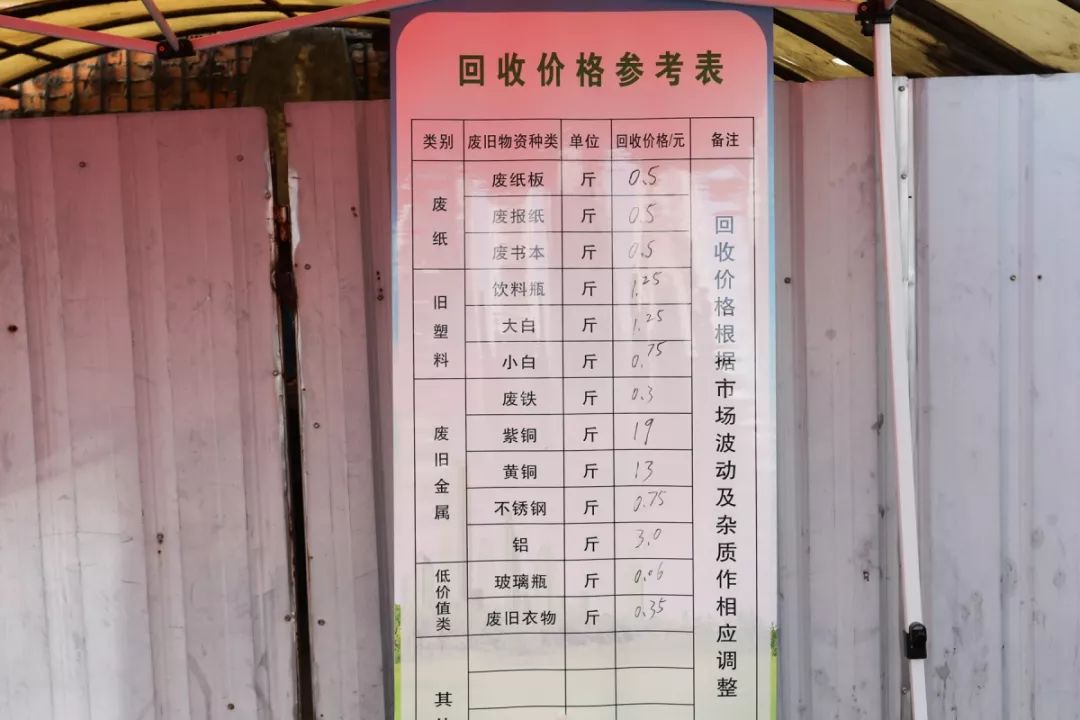 回收价格参考表
类别 废旧物资种类 单位 回收价格/元 备注
废纸 废纸板 斤 0.5
废报纸 斤 0.5
废书本 斤 0.5
旧塑料 饮料瓶 斤 1.25
大白 斤 1.25
小白 斤 0.75
废旧金属 废铁 斤 0.3
紫铜 斤 19
黄铜 斤 13
不锈钢 斤 0.75
铝 斤 3.0
低价值类 玻璃瓶 斤 0.06
废旧衣物 斤 0.35
其
回收价格根据市场波动及杂质作相应调整